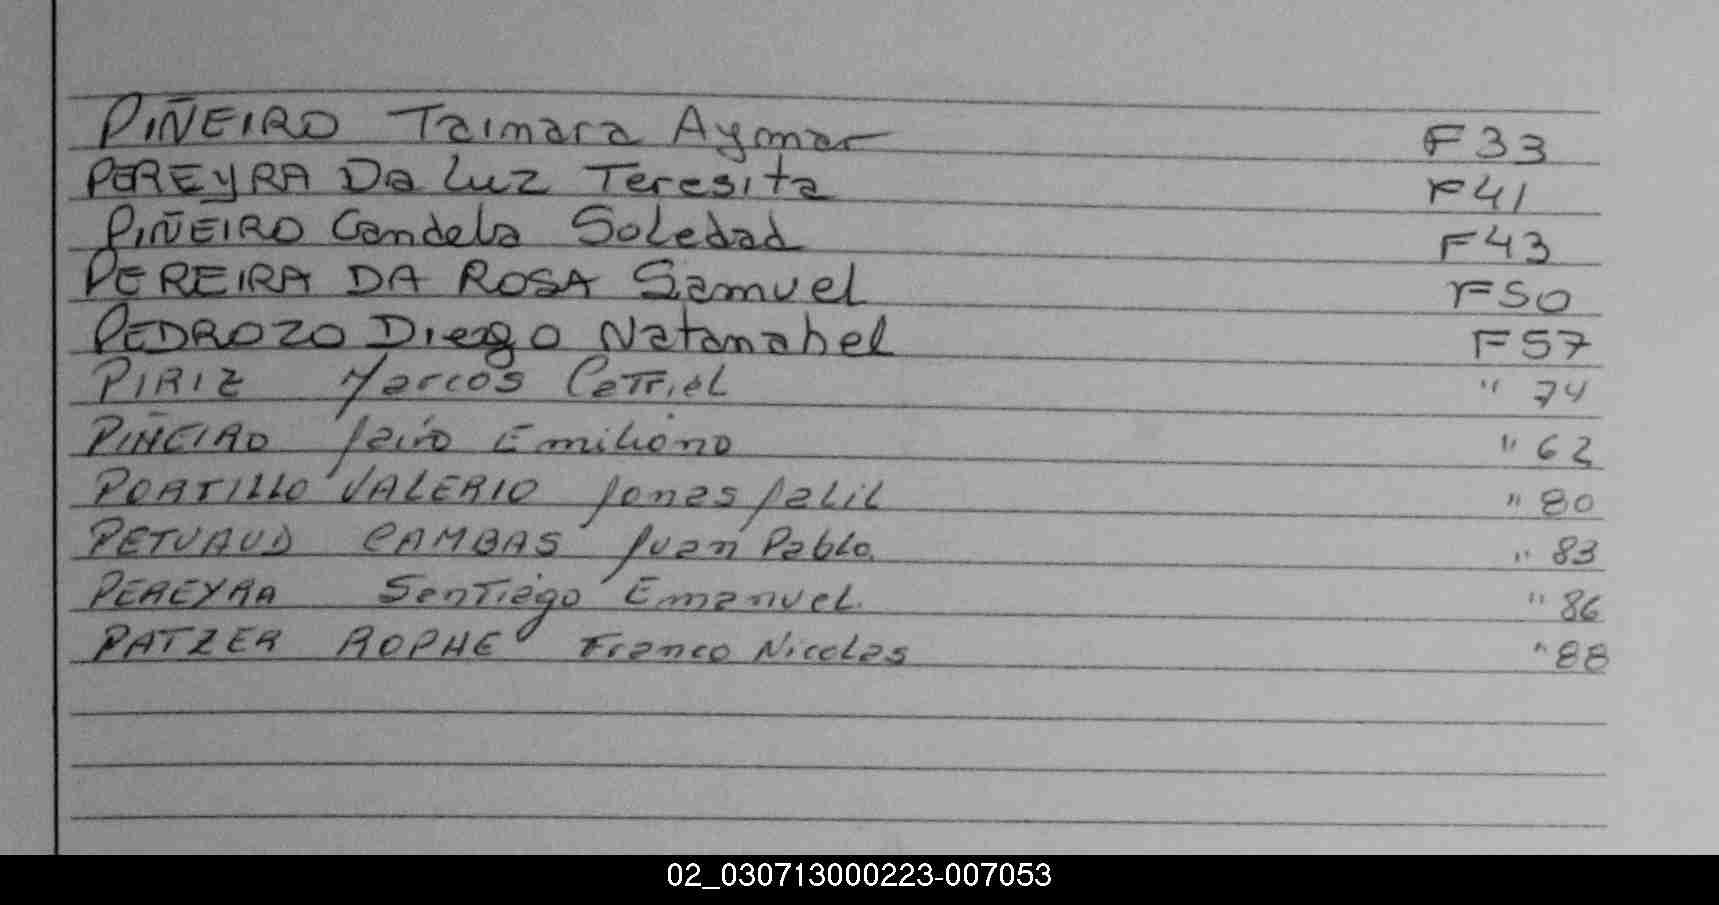 PIÑEIRO Taimara Aymar F 33
PEREYRA Da Luz Teresita F 41
PIÑEIRO Candela Soledad F 43
PEREIRA DA ROSA Samuel F 50
PEDROZO Diego Natanahel F 57
PIRIZ Marcos Catriel " 74
PIÑEIRO Jairo Emiliano " 62
PORTILLO VALERIO Jonas Jalil " 80
PETUAUD CAMBAS Juan Pablo. " 83
PEREYRA Santiago Emanuel. " 86
PATZER ROPHE Franco Nicolas " 88
02_030713000223-007053